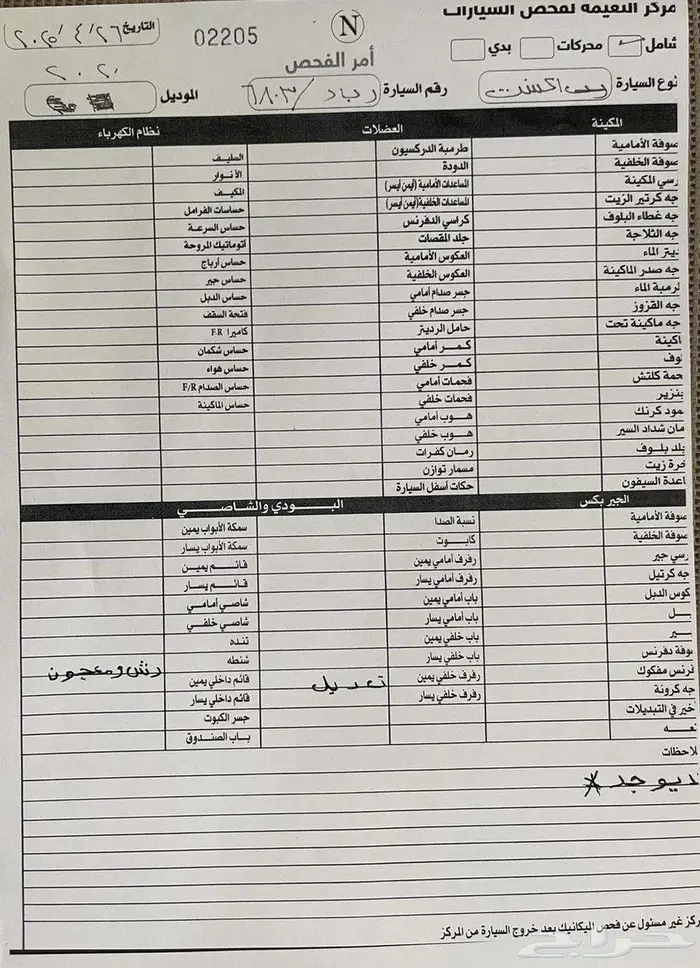 مركز النعيمة لفحص السيارات
N
02205
التاريخ ٢٦ / ٤ / ٢٠٢٥
شامل محركات بدي
أمر الفحص
نوع السيارة
رقم السيارة ١٨٠٣ /
الموديل ٢٠٢٠
المكينة العضلات نظام الكهرباء
صوفة الأمامية طرمبة الدركسيون السليف
صوفة الخلفية الدودة الأنوار
رسي المكينة المساعدات الأمامية (أيمن أيسر) المكيف
جه كرتير الزيت المساعدات الخلفية (أيمن أيسر) حساسات الفرامل
جه غطاء البلوف كراسي الدفرنس حساس السرعة
جه الثلاجة جلد المقصات أتوماتيك المروحة
ديتر الماء العكوس الأمامية حساس أرباج
جه صدر الماكينة العكوس الخلفية حساس جير
لرمبة الماء جسر صدام أمامي حساس الدبل
جه القزوز جسر صدام خلفي فتحة السقف
جه ماكينة تحت حامل الرديتر كاميرا F.R
اكينة كمر أمامي حساس شكمان
لوف كمر خلفي حساس هواء
حمة كلتش فحمات أمامي حساس الصدام F/R
بنزير فحمات خلفي حساس الماكينة
مود كرنك هوب أمامي
مان شداد السير هوب خلفي
بلد بلوف رمان كفرات
خرة زيت مسمار توازن
اعدة السيفون حكات أسفل السيارة
الجير بكس البودي والشاصي
صوفة الأمامية نسبة الصدا سمكة الأبواب يمين
صوفة الخلفية كابوت سمكة الأبواب يسار
رسي جير رفرف أمامي يمين قائم يمين
جه كرتيل رفرف أمامي يسار قائم يسار
كوس الدبل باب أمامي يمين شاصي أمامي
بل باب أمامي يسار شاصي خلفي
ير باب خلفي يمين تنده
صوفة دفرنس باب خلفي يسار شنطه رش ومعجون
فرنس مفكوك رفرف خلفي يمين تعديل قائم داخلي يمين
جه كرونة رفرف خلفي يسار قائم داخلي يسار
خير في التبديلات جسر الكبوت
عه باب الصندوق
لاحظات
يوجد
ركز غير مسئول عن فحص الميكانيك بعد خروج السيارة من المركز
حراج